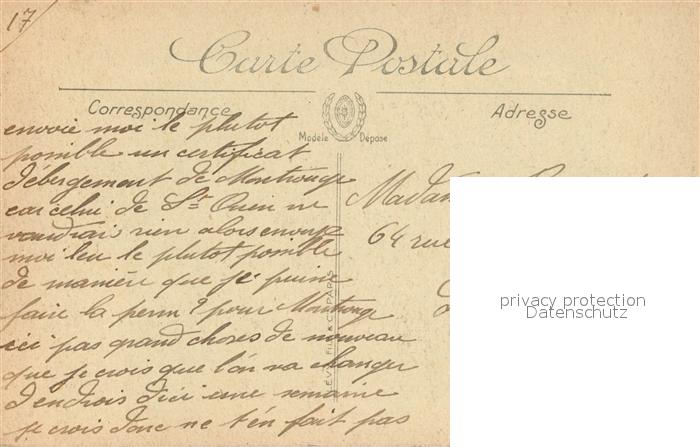 17
Carte Postale
Correspondance
Adresse
Modèle Déposé
envoie moi le plutot
possible un certificat
d'ébergement de Montrouge
car celui de St Ouen ne
vaudrais rien alors envoye
moi leu le plutot possible
de manière que je puisse
faire la perm? pour Montrouge
ici pas grand choses de nouveau
que je crois que l'on va changer
d'endrois d'ici une semaine
je crois donc ne t'en fait pas
LÉVY FILS & Cie PARIS
Madam
64 rue
privacy protection
Datenschutz